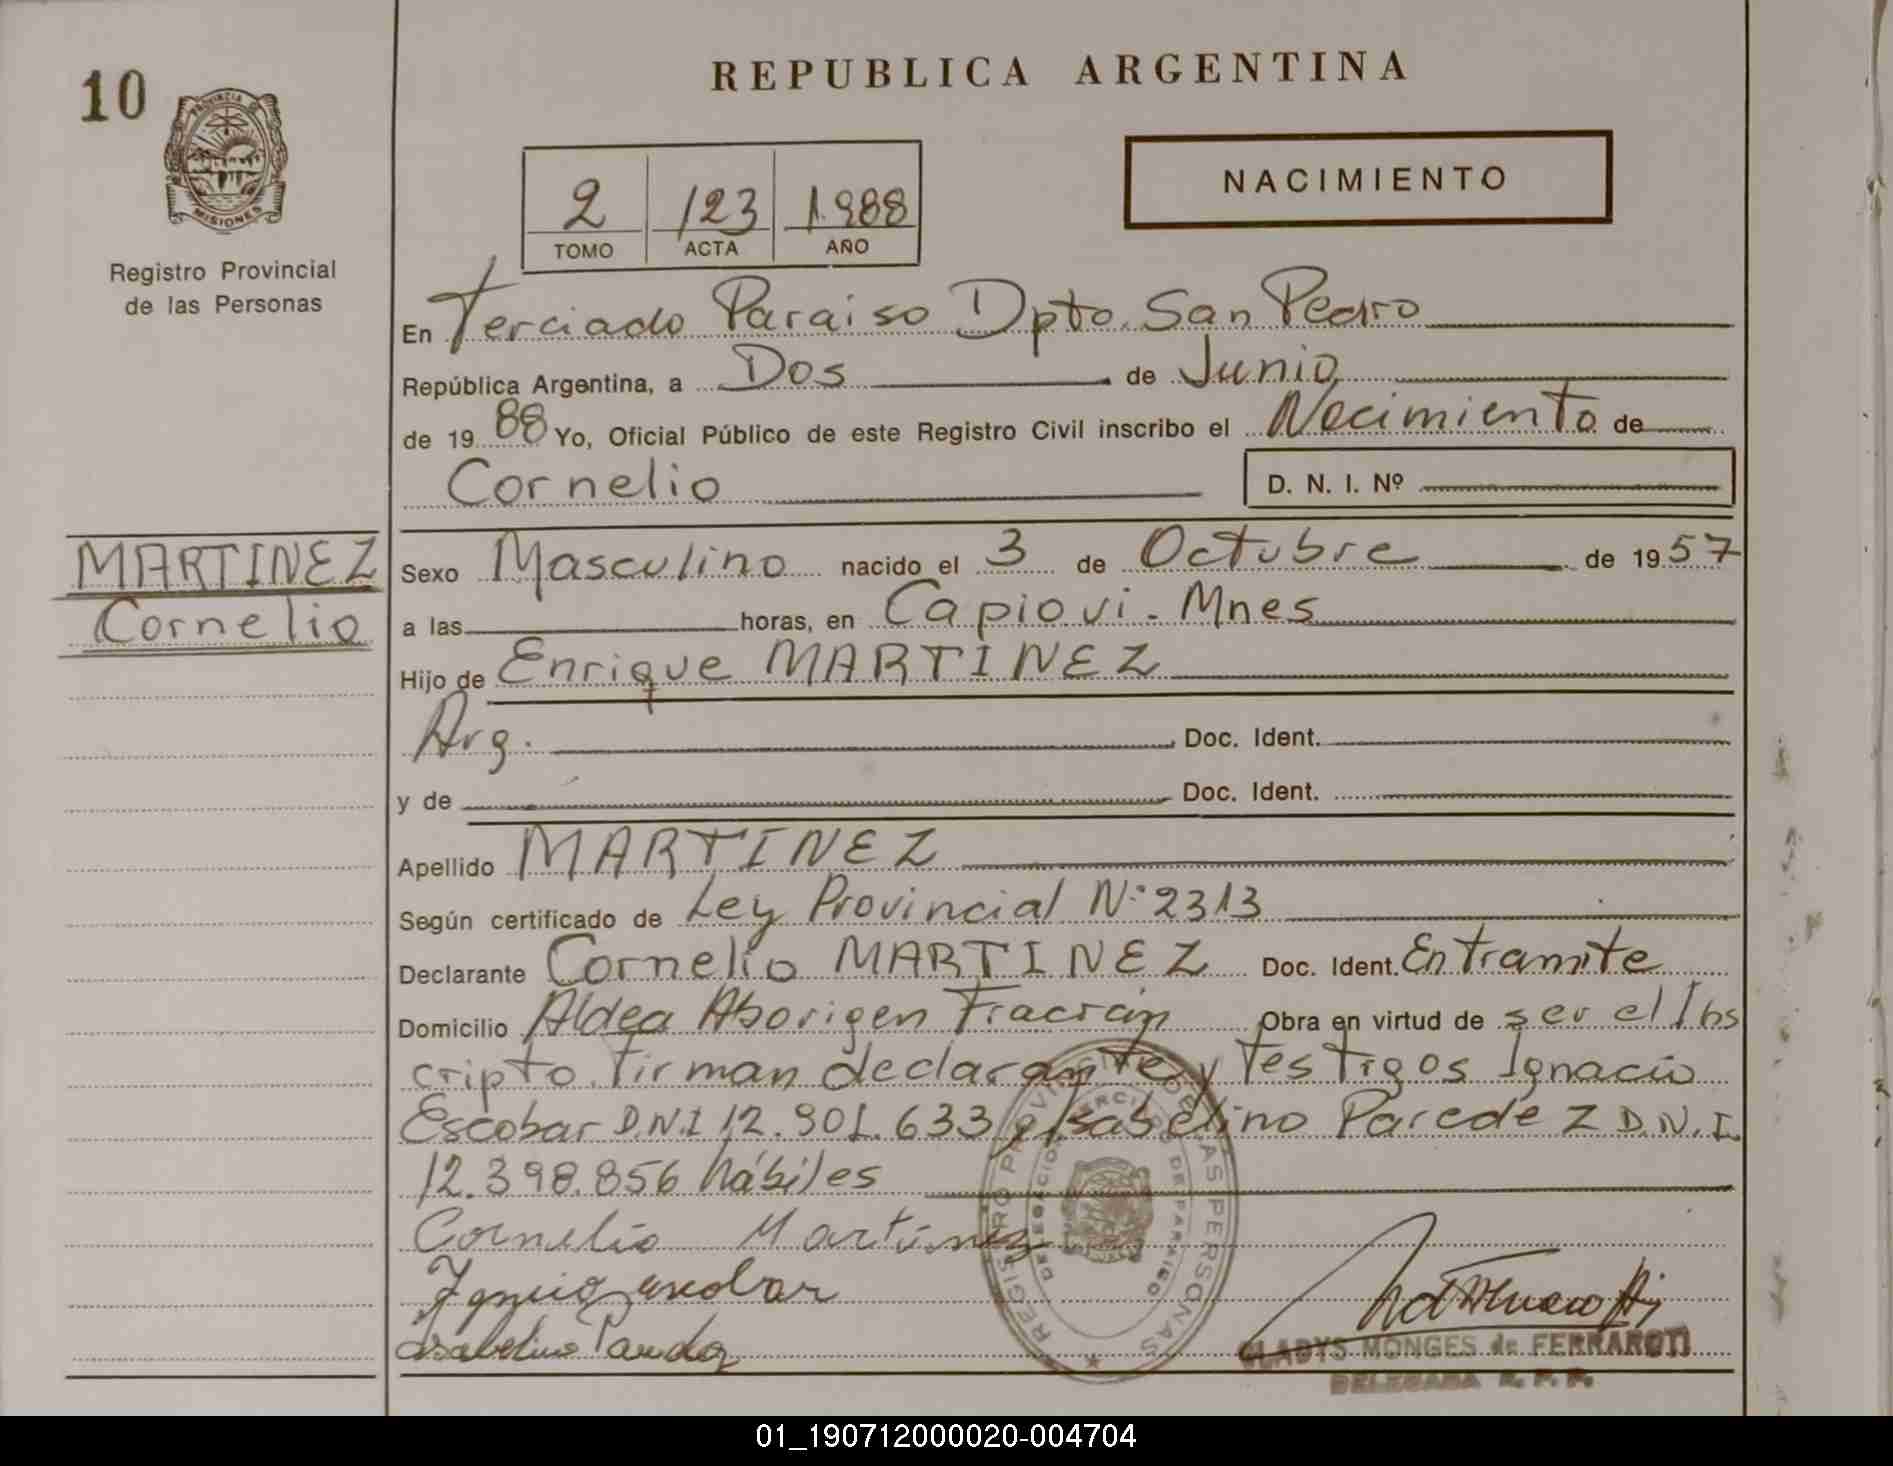 10
REPUBLICA ARGENTINA
PROVINCIA DE
MISIONES
Registro Provincial
de las Personas
2 123 1.988
TOMO ACTA AÑO
NACIMIENTO
En Terciado Paraiso Dpto. San Pedro
República Argentina, a Dos de Junio
de 19 88 Yo, Oficial Público de este Registro Civil inscribo el Nacimiento de
Cornelio D. N. I. Nº
MARTINEZ
Cornelio
Sexo Masculino nacido el 3 de Octubre de 19 57
a las horas, en Capiovi - Mnes
Hijo de Enrique MARTINEZ
Arg. Doc. Ident.
y de Doc. Ident.
Apellido MARTINEZ
Según certificado de Ley Provincial Nº 2313
Declarante Cornelio MARTINEZ Doc. Ident. En Tramite
Domicilio Aldea Aborigen Fracrán Obra en virtud de ser el Ins
cripto. Firman declarante y Testigos Ignacio
Escobar D.N.I 12.901.633 y Isabelino Paredez D.N.I.
12.398.856 hábiles
Cornelio Martinez
Ignacio escobar
REGISTRO PROVINCIAL DE LAS PERSONAS
GLADYS MONGES de FERRAROTI
DELEGADA R. P. P.
01_190712000020-004704